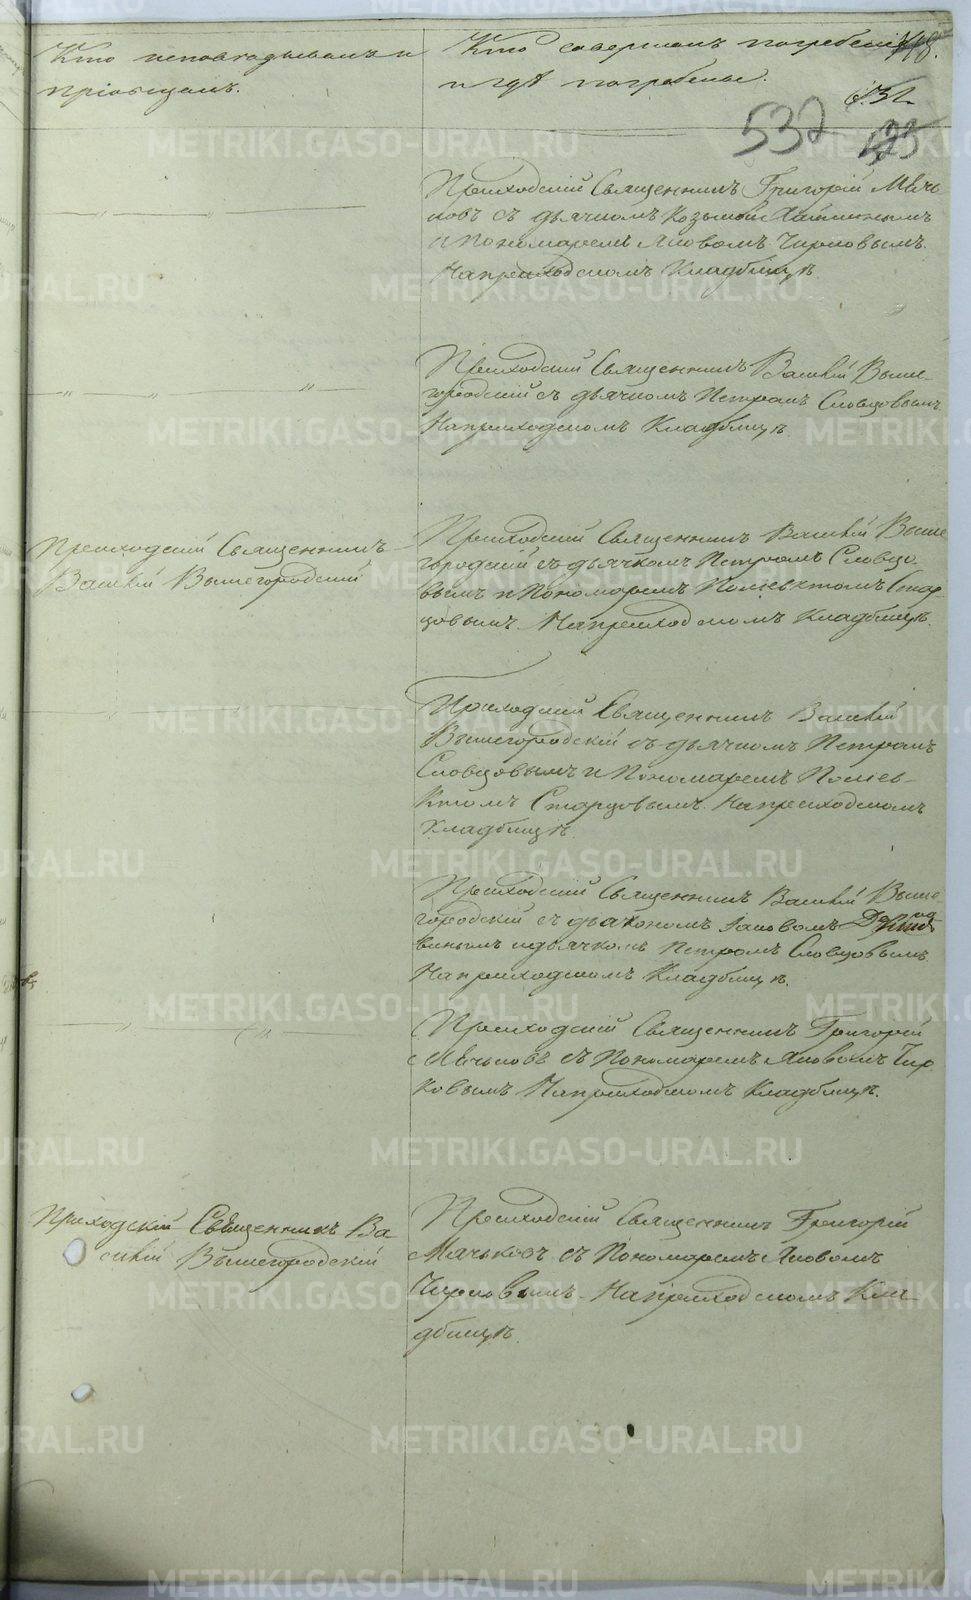 Кто исповѣдывалъ и
пріобщалъ.
Кто совершалъ погребеніе
и гдѣ погребены.
532
Приходскій Священникъ Григорій Мячь
ковъ съ дьячкомъ Козьмой
и Пономаремъ Яковомъ Чирковымъ.
На приходскомъ Кладбищѣ.
Приходскій Священникъ Василій Выше-
городскій съ дьячкомъ Петромъ Словцовымъ
На приходскомъ Кладбищѣ.
Приходскій Священникъ
Василій Вышегородскій
Приходскій Священникъ Василій Выше
городскій съ дьячкомъ Петромъ Словцо-
вымъ и Пономаремъ Полиевктомъ Стар
цовымъ. На приходскомъ Кладбищѣ.
Приходскій Священникъ Василій
Вышегородскій съ дьячкомъ Петромъ
Словцовымъ и Пономаремъ Полиев-
ктомъ Старцовымъ. На приходскомъ
Кладбищѣ.
Приходскій Священникъ Василій Выше-
городскій съ діакономъ Іаковомъ
винымъ и дьячкомъ Петромъ Словцовымъ.
На приходскомъ Кладбищѣ.
Приходскій Священникъ Григорій
Мячьковъ съ Пономаремъ Яковомъ Чир
ковымъ На приходскомъ Кладбищѣ.
Приходскій Священникъ Ва
силій Вышегородскій
Приходскій Священникъ Григорій
Мячьковъ съ Пономаремъ Яковомъ
Чирковымъ. На приходскомъ Кла-
дбищѣ.
METRIKI.GASO-URAL.RU